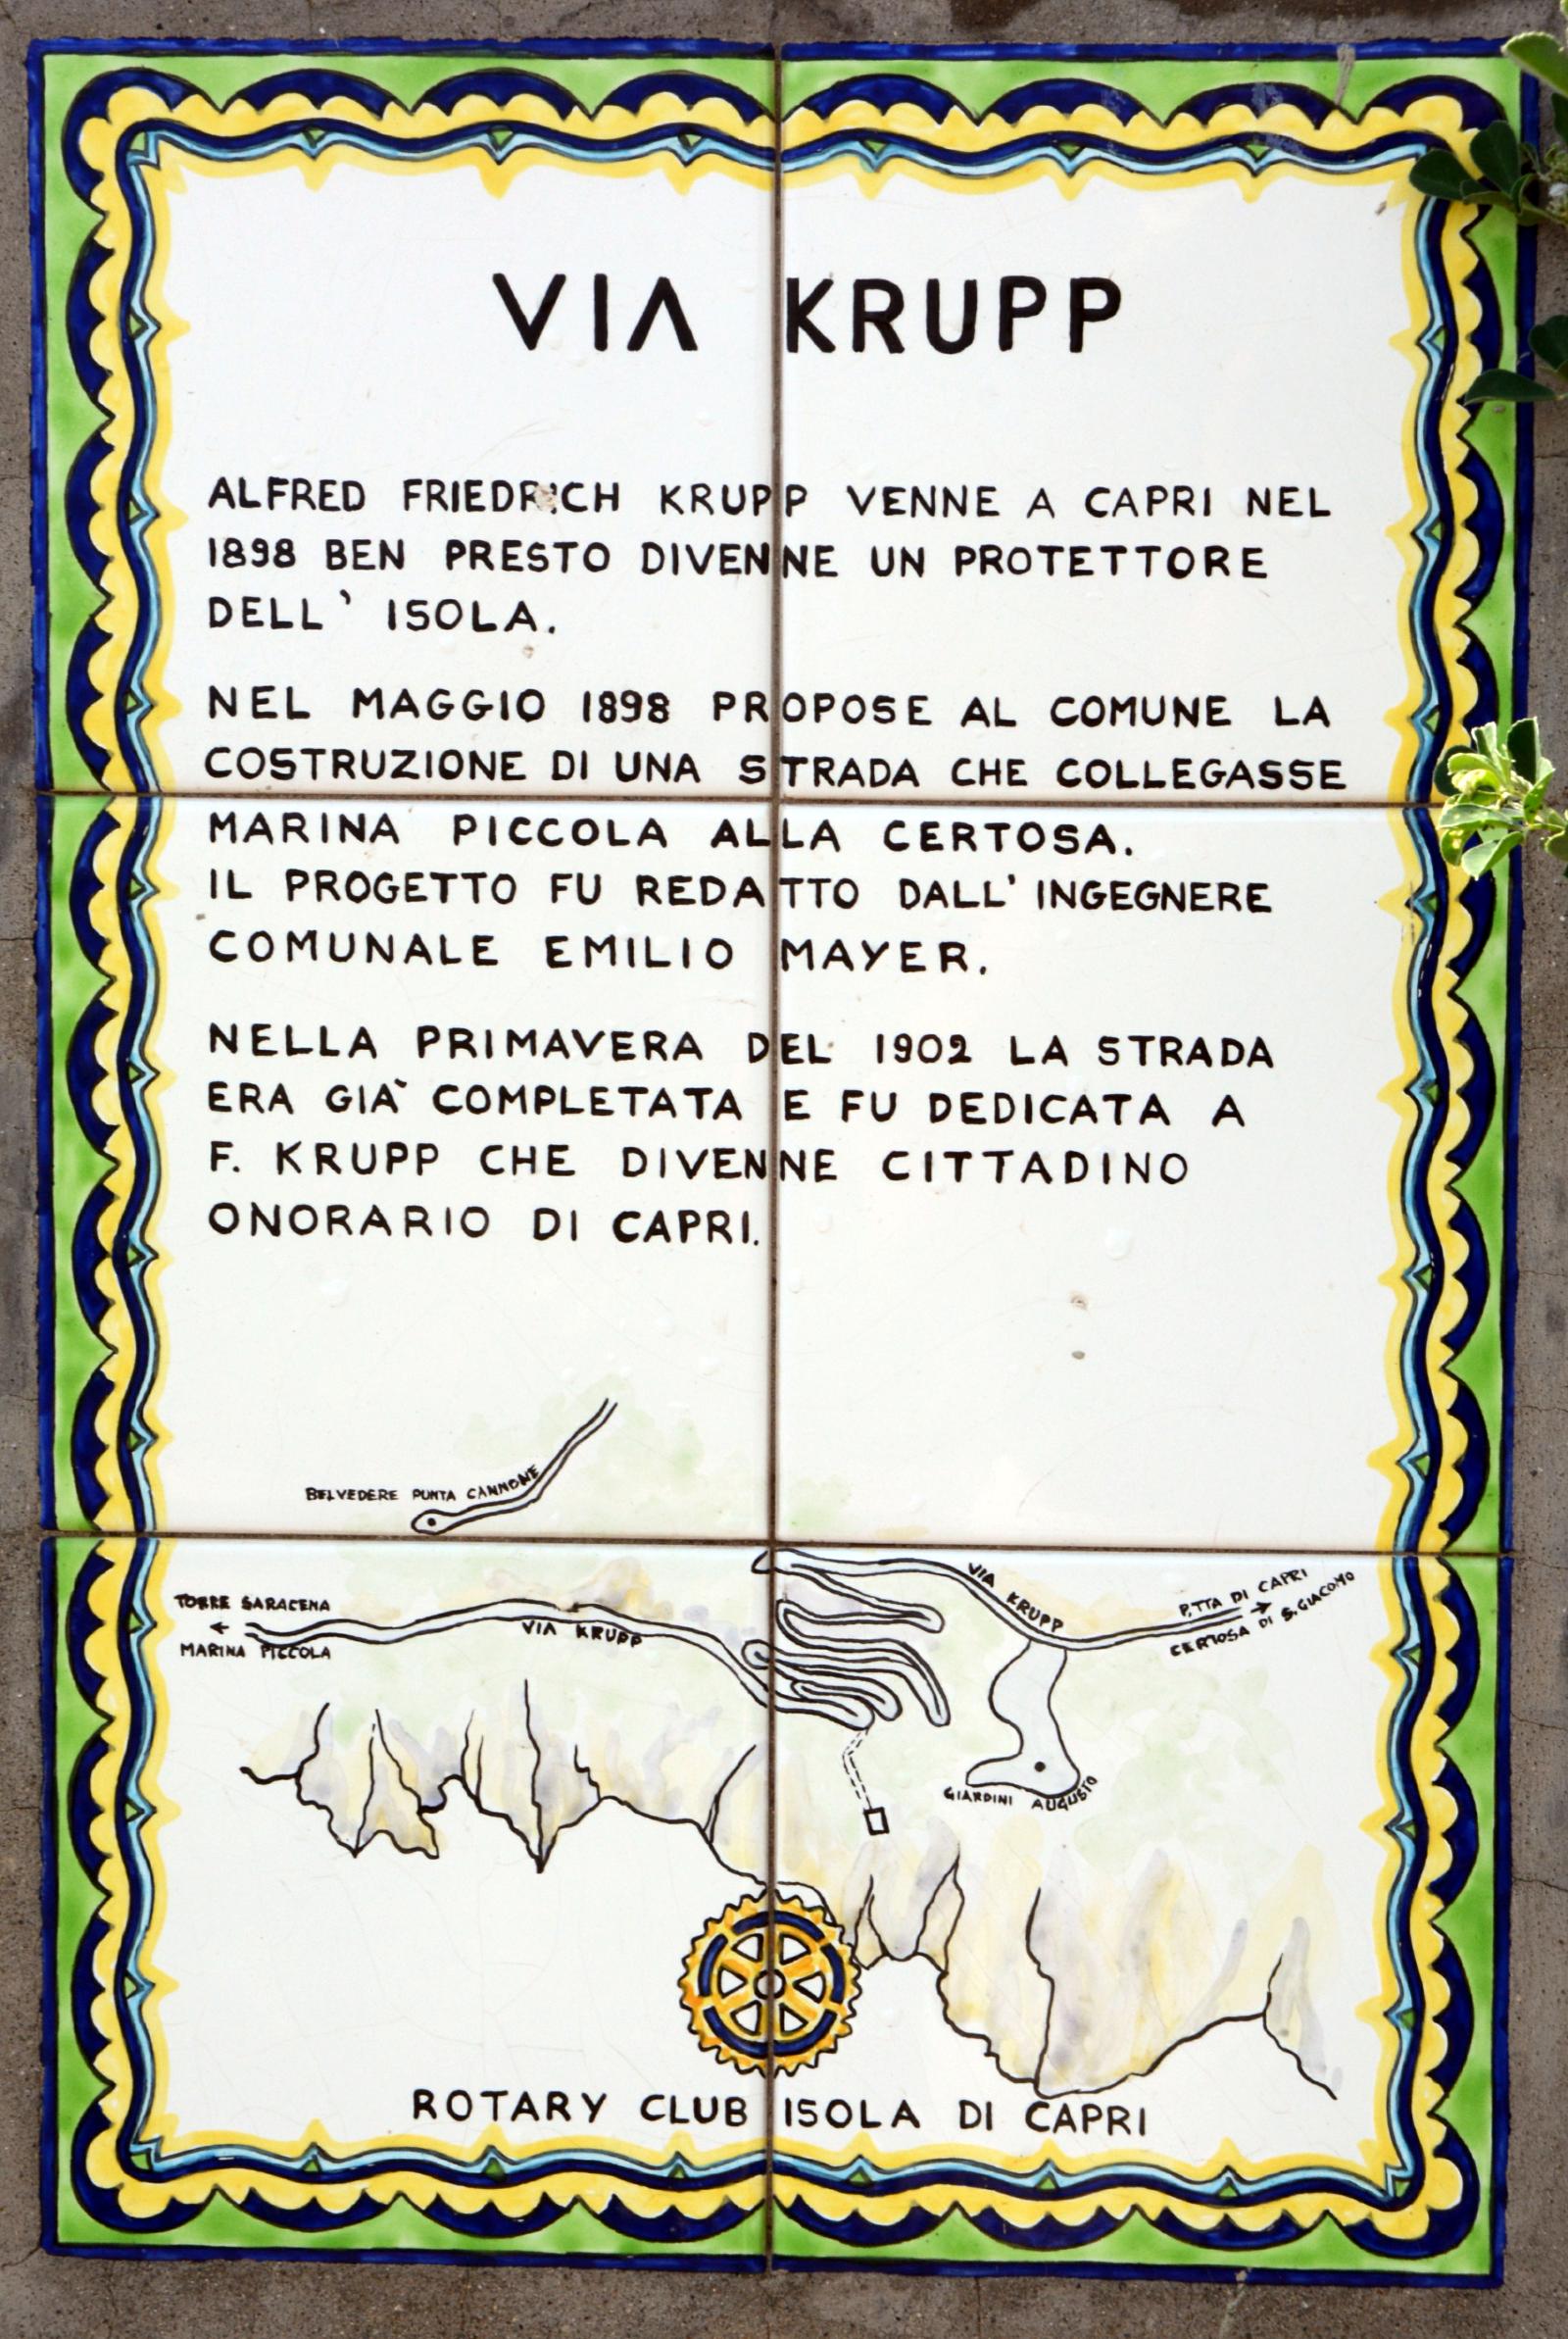 VIA KRUPP
ALFRED FRIEDRICH KRUPP VENNE A CAPRI NEL
1898 BEN PRESTO DIVENNE UN PROTETTORE
DELL' ISOLA.
NEL MAGGIO 1898 PROPOSE AL COMUNE LA
COSTRUZIONE DI UNA STRADA CHE COLLEGASSE
MARINA PICCOLA ALLA CERTOSA.
IL PROGETTO FU REDATTO DALL' INGEGNERE
COMUNALE EMILIO MAYER.
NELLA PRIMAVERA DEL 1902 LA STRADA
ERA GIA` COMPLETATA E FU DEDICATA A
F. KRUPP CHE DIVENNE CITTADINO
ONORARIO DI CAPRI.
BELVEDERE PUNTA CANNONE
TORRE SARACENA
MARINA PICCOLA
VIA KRUPP
VIA KRUPP
P.TTA DI CAPRI
CERTOSA DI S. GIACOMO
GIARDINI AUGUSTO
ROTARY CLUB ISOLA DI CAPRI